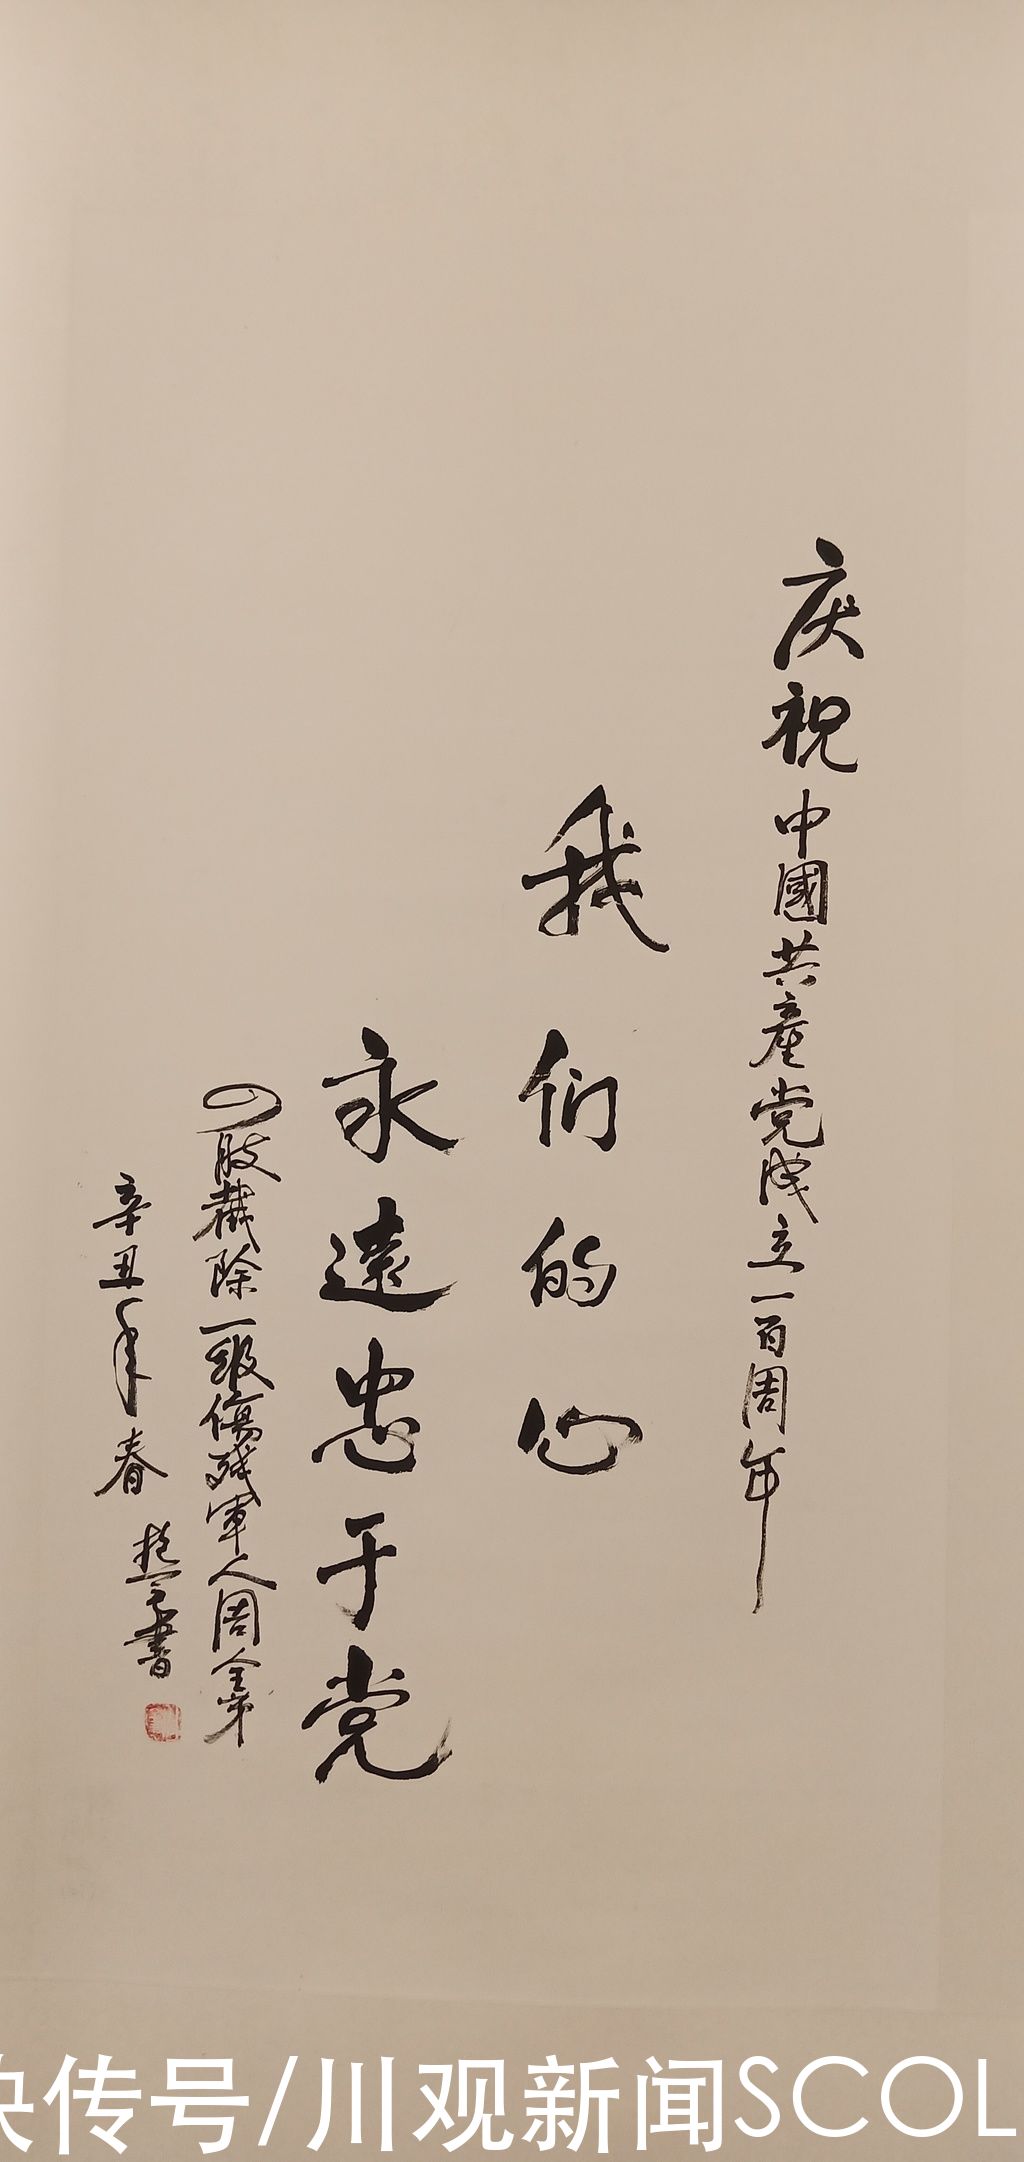 庆祝中國共產党成立一百周年
我们的心
永遠忠于党
四肢截除一级傷残軍人周全弟
辛丑年春
抱拳書
快传号/川观新闻SCOL